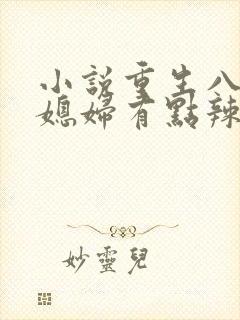 小說重生八
媳婦有點辣
妙靈兒